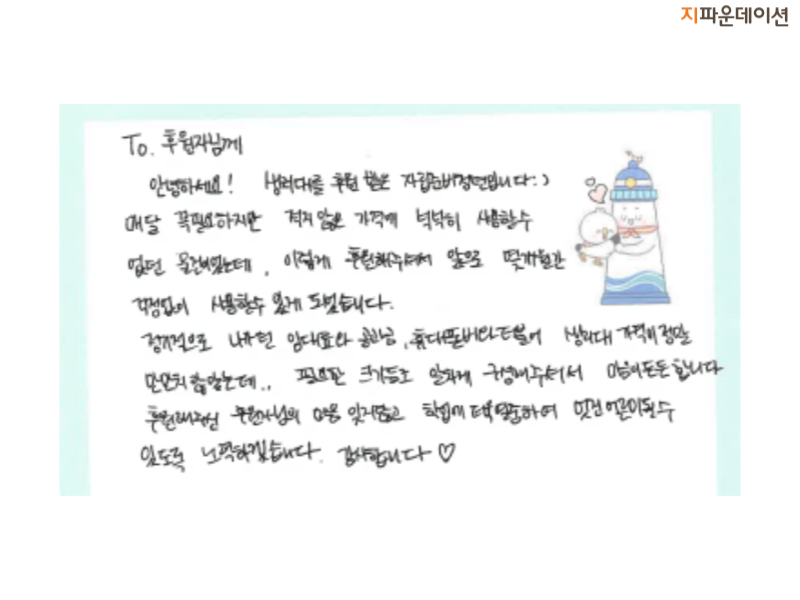 지파운데이션
To. 후원자님께
안녕하세요! 생리대를 후원 받은 자립준비청년입니다:)
매달 꼭필요하지만 적지 않은 가격에 넉넉히 사용할수
없던 물건이었는데, 이렇게 후원해주셔서 앞으로 몇개월간
걱정없이 사용할수 있게 되었습니다.
정기적으로 나가던 임대료와 공과금, 휴대폰비와 더불어 생리대 가격이 정말
만만치 않았는데.. 필요한 크기들로 알차게 구성해주셔서 마음이 든든합니다
후원해주신 후원자님의 마음 잊지않고 학업에 더욱 집중하여 멋진 어른이 될 수
있도록 노력하겠습니다. 감사합니다 ♡